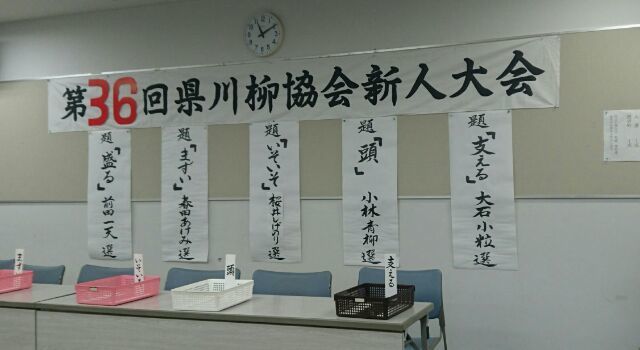 第36回県川柳協会新人大会
題「支える」 大石小粒 選
題「頭」 小林青柳 選
題「いそいそ」 桜井しげのり 選
題「まずい」 春田あけみ 選
題「盛る」 前田一天 選
まず
いそいそ
頭
支える